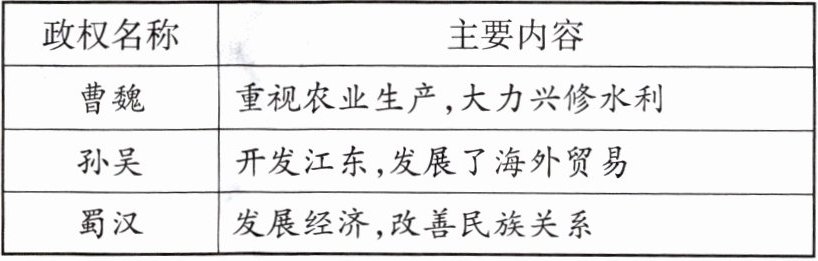 政权名称 主要内容
曹魏 重视农业生产,大力兴修水利
孙吴 开发江东,发展了海外贸易
蜀汉 发展经济,改善民族关系